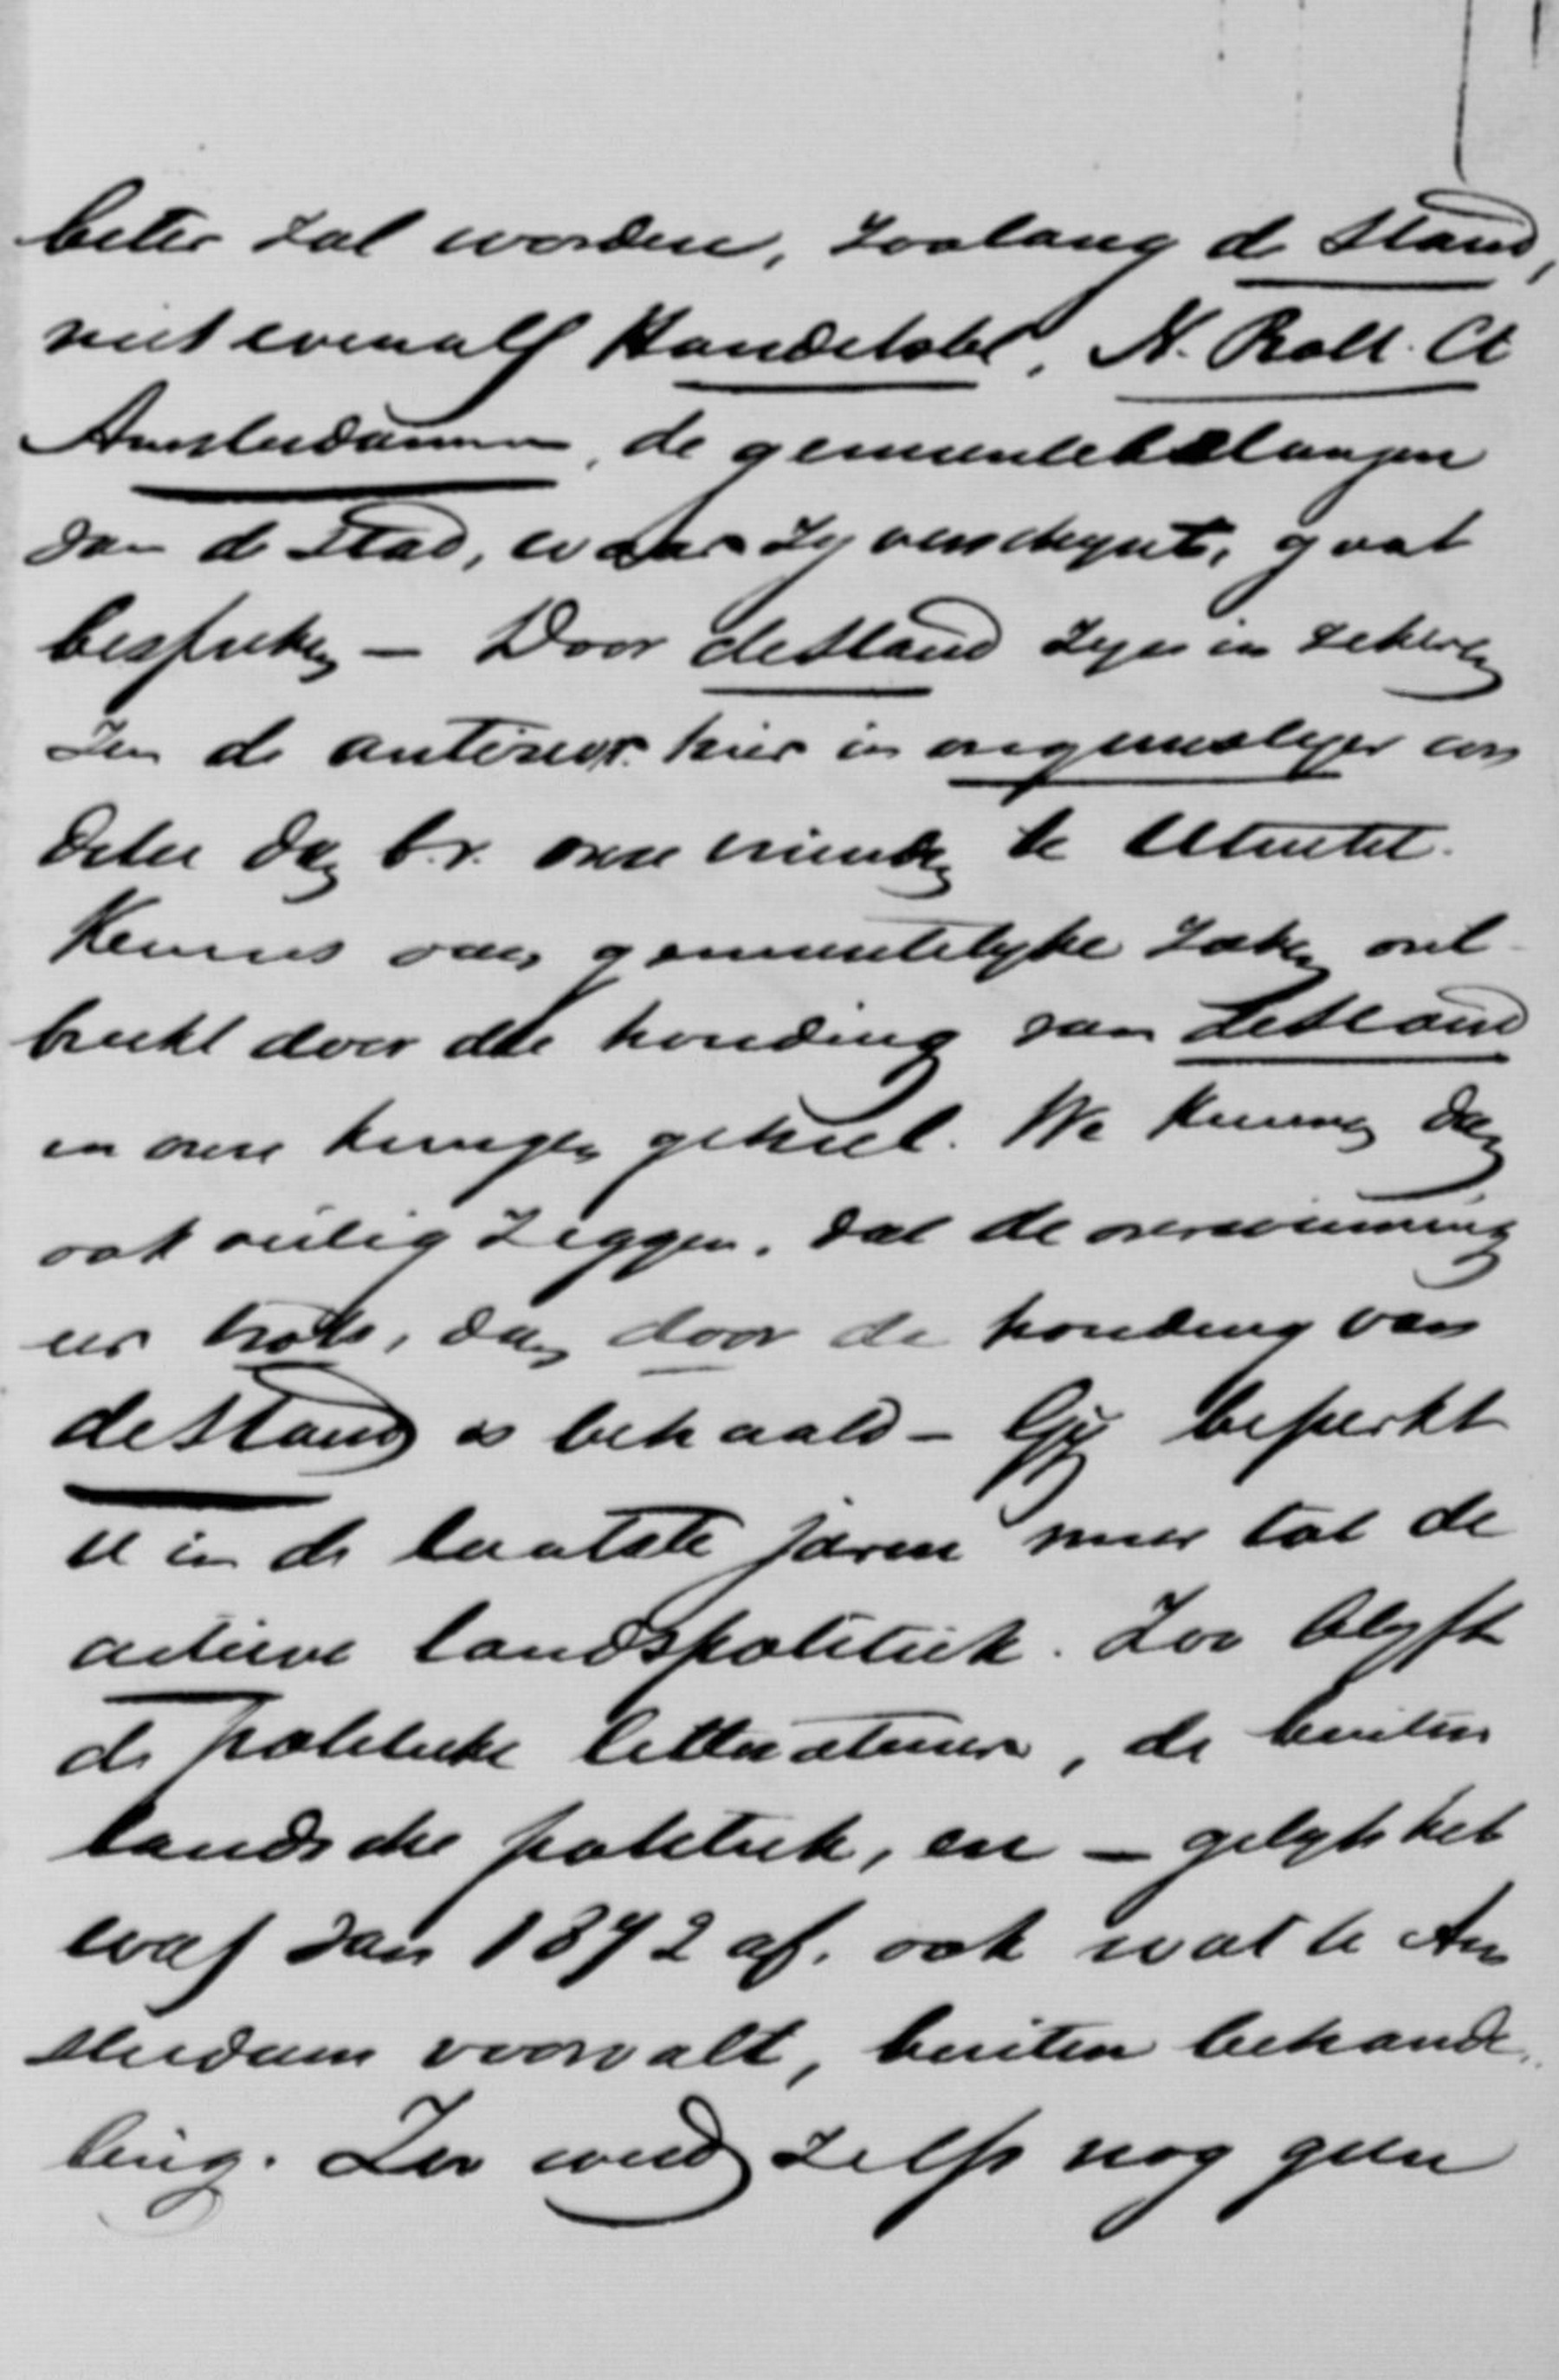 beter zal worden, zoolang de Stand,
niet evenals Handelsbl, N. Rott. Ct
Amsterdammer, de gemeentebelangen
van de stad, waar zy verschynt, gaat
bespreken – Door de Stand zyn in zekeren
zin de antirev. hier in ongunstiger con
ditie dan b.v. onze vrienden te Utrecht.
Kennis van gemeentelyke zaken ont-
breekt door die houding van de Stand
in onze kringen geheel. We kunnen dan
ook veilig zeggen, dat de overwinning
eer trots, dan door de houding van
de Stand is behaald – Gy beperkt
U in de laatste jaren meer tot de
actieve landspolitiek. Zoo blyft
de politieke litteratuur, de buiten
landsche politiek, en – gelyk het
was van 1872 af, ook wat te Am
sterdam voorvalt, buiten behande-
ling. Zoo werd zelfs nog geen